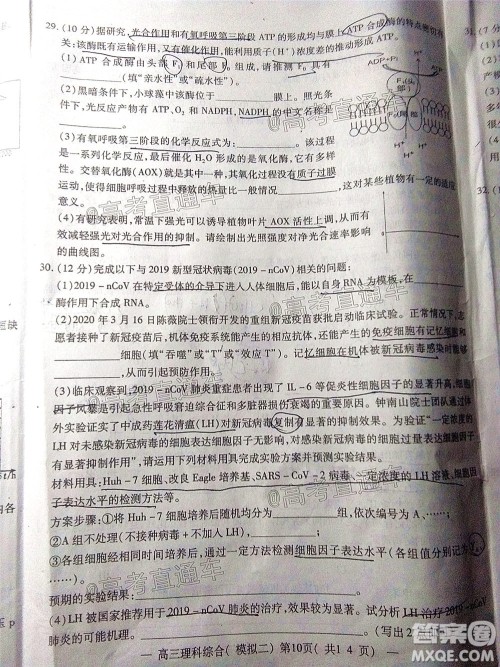 29.(10 分)据研究,光合作用和有氧呼吸第三阶段 ATP 的形成均与膜上 ATP 合成酶的特点密切有
关:该酶既有运输作用,又有催化作用,能利用质子(H⁺)浓度差的推动形成 ATP。
(1)ATP 合成酶由头部 F₁ 和尾部 F₀ 组成,请推测 F₁ 具有
(填“亲水性”或“疏水性”)。
(2)黑暗条件下,小球藻中该酶起作用的场所
膜上。照光条件下
水,光反应产物有 ATP、O₂ 和 NADPH, NADPH 的
中。
(3)有氧呼吸第三阶段的化学反应式为:
。该过程
是一系列化学反应,最后催化 H₂O 形成的是氧化酶,它有多种
性。交替氧化酶(AOX)就是其中一种,其氧化过程没有质子过膜
运动,使得细胞呼吸过程中释放的热量比一般情况
,这对某些植物有一定的适应
意义。
(4)有研究表明,常温下强光可以诱导植物叶片 AOX 活性上调,从而有
效减轻强光对光合作用的抑制。请绘制光照强度对净光合速率影响
的曲线图。
ADP+Pi
ATP
H⁺
H⁺
H⁺
30.(12 分)完成以下与 2019 新型冠状病毒(2019-nCoV)相关的问题:
(1)2019-nCoV 在特定受体的介导下进入人体细胞后,能以自身 RNA 为模板,在
酶作用下合成 RNA。
(2)2020 年 3 月 16 日陈薇院士领衔开发的重组新冠疫苗获批启动临床试验。正常情况下,
接种了新冠疫苗后,机体免疫系统能产生的相应抗体,还能产生的免疫细胞有记忆细胞和
细胞(填“吞噬”或“效应 B”或“效应 T”)。记忆细胞在机体被新冠病毒感染时能够
,从而引起预防作用。
(3)临床观察到,2019-nCoV 肺炎重症患者出现了 IL-6 等促炎性细胞因子的显著升高,细胞
因子风暴是引起急性呼吸窘迫综合征和多脏器损伤衰竭的重要原因。钟南山院士团队通过体
外实验证实了中成药莲花清瘟(LH)对新冠病毒复制有
效果。为验证“一定浓度的
LH 对未感染新冠病毒的细胞表达细胞因子无影响,对感染新冠病毒的细胞过量表达细胞因子
有显著抑制作用”,请运用下列实验材料完成实验方案并预测实验结果。
材料用具:Huh-7 细胞、改良 Eagle 培养基、SARS-CoV-2 病毒、一定浓度的 LH 溶液、细胞因
子表达水平的检测方法等。
方案步骤:①将 Huh-7 细胞培养后随机均分为
组,依次编号为 A……;
②A 组不处理(不加病毒、不加人 LH),
;
③各组细胞经相同时间培养后,通过一定方法检测细胞因子表达水平(各组相对值分别记为
……)。
预期的实验结果:
。
(4)LH 被国家推荐用于 2019-nCoV 肺炎的治疗,效果较为显著。试分析 LH 治疗 2019-nCoV
肺炎的可能机理:
。(写出 2
— 高三理科综合( 模拟二 )第10页( 共 1 4 页 ) —
@高考直通车
@高考直通车
@高考直通车
答案圈